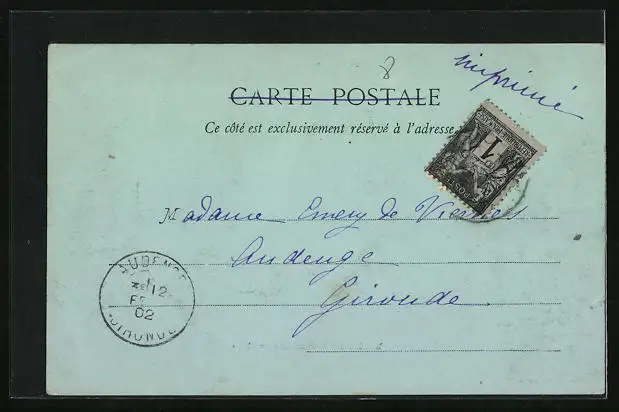 8
imprimé
CARTE POSTALE
Ce côté est exclusivement réservé à l'adresse.
1
Madame Emery de
Audenge
Gironde
AUDENGE
12
FE
02
GIRONDE